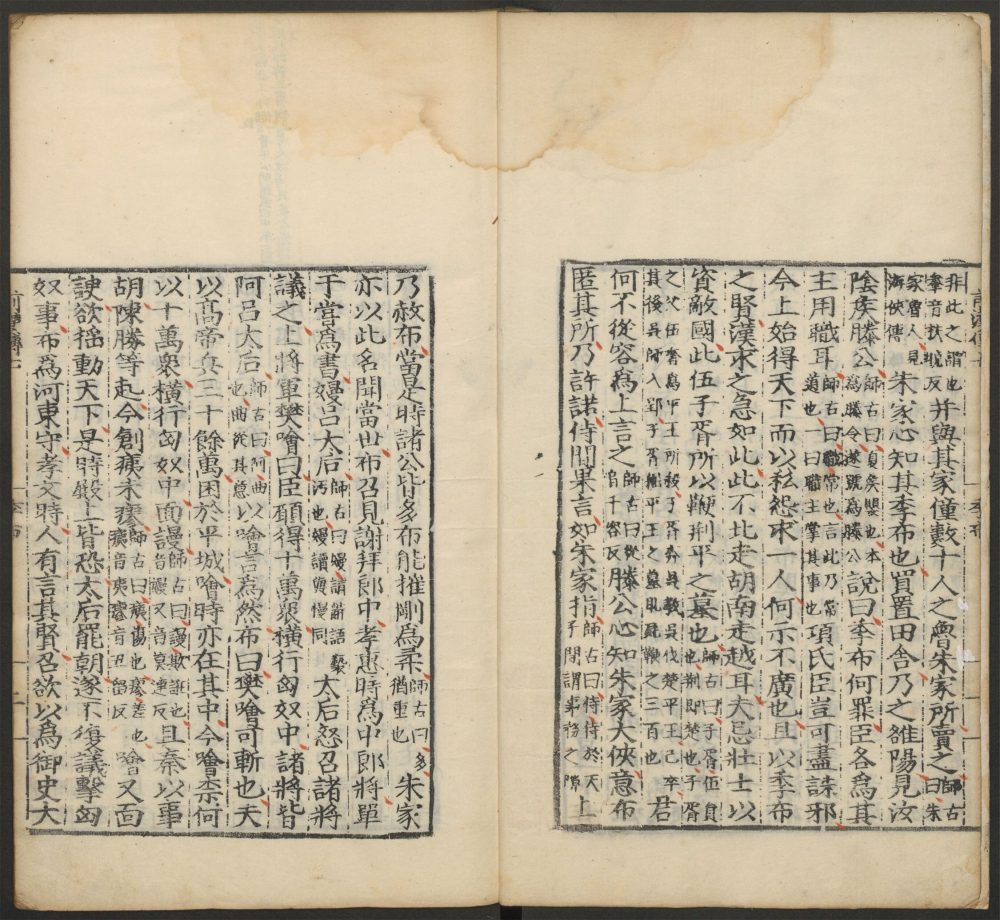 非此之謂也
輂音扶晚反
并與其家僮數十人之魯朱家所賣之
師古
曰朱
家魯人見
游俠傳
朱家心知其季布也買置田舍乃之雒陽見汝
陰矦滕公
師古曰夏矦嬰也本
為滕令遂號為滕公
說曰季布何罪臣各為其
主用職耳
師古曰職常也言此乃常
道也一曰職主掌其事也
項氏臣豈可盡誅邪
今上始得天下而以私怨求一人何示不廣也且以季布
之賢漢求之急如此此不北走胡南走越耳夫忌壯士以
資敵國此伍子胥所以鞭荆平之墓也
師古曰子胥伍負
也荆即楚也子胥
之父伍奢為平王所殺子胥奔吳教吳伐楚平王已卒
其後吳師入郢子胥掘平王之墓取屍鞭之三百也
君
何不從容為上言之
師古曰從
音千容反
滕公心知朱家大俠意布
匿其所乃許諾侍間果言如朱家指
師古曰侍侍於天
子間謂事務之隙
上
乃赦布當是時諸公皆多布能摧剛為柔
師古曰多
猶重也
朱家
亦以此名聞當世布召見謝拜郎中孝惠時為中郎將單
于嘗為書嫚吕太后
師古曰嫚謂辭語褻
汚也嫚讀與慢同
太后怒召諸將
議之上將軍樊噲曰臣願得十萬衆橫行匈奴中諸將皆
阿吕太后
師古曰阿曲
也曲從其意
以噲言為然布曰樊噲可斬也夫
以高帝兵三十餘萬困於平城噲時亦在其中今噲柰何
以十萬衆橫行匈奴中面謾
師古曰謾欺誑也
音嫚又音莫連反
且秦以事
胡陳勝等起今創痍未瘳
師古曰痍傷也瘳差也
痍音夷瘳音丑留反
噲又面
諛欲揺動天下是時殿上皆恐太后罷朝遂不復議擊匈
奴事布為河東守孝文時人有言其賢召欲以為御史大